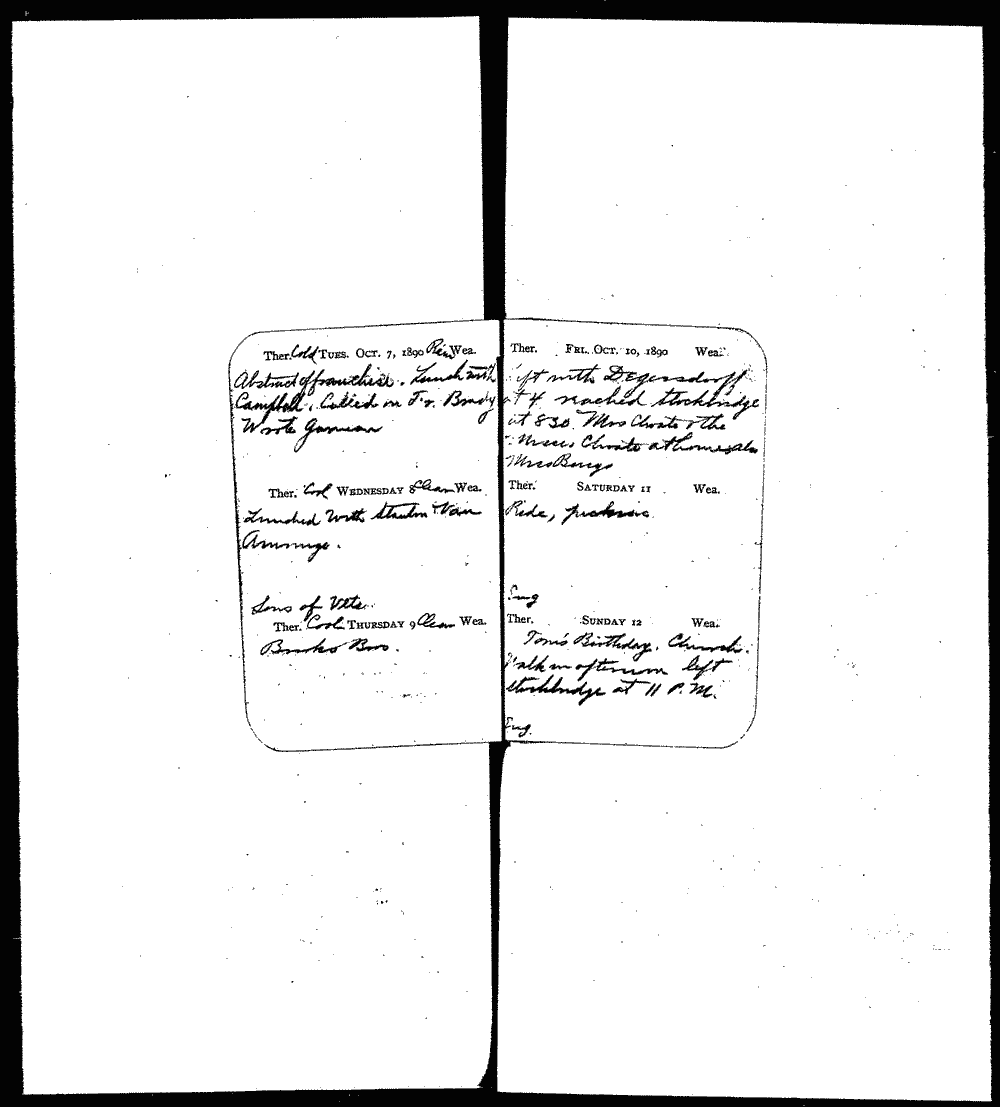 Ther. Cold TUES. OCT. 7, 1890 Rain Wea.
Abstract of franchise. Lunch with
Campbell. Called on Brady
Wrote
Ther. Cool WEDNESDAY 8 Clear Wea.
Lunched with & Van
Sons of Vets.
Ther. Cool THURSDAY 9 Clear Wea.
Brooks Bros.
Ther. FRI. OCT. 10, 1890 Wea.
left with Degersdorff
at 4 reached Stockbridge
at 830. Mrs Choate & the
Misses Choate at home also
Mrs
Ther. SATURDAY 11 Wea.
Ride, picknic.
Ther. SUNDAY 12 Wea.
Tom's Birthday. Church.
Walk in afternoon left
Stockbridge at 11 P.M.